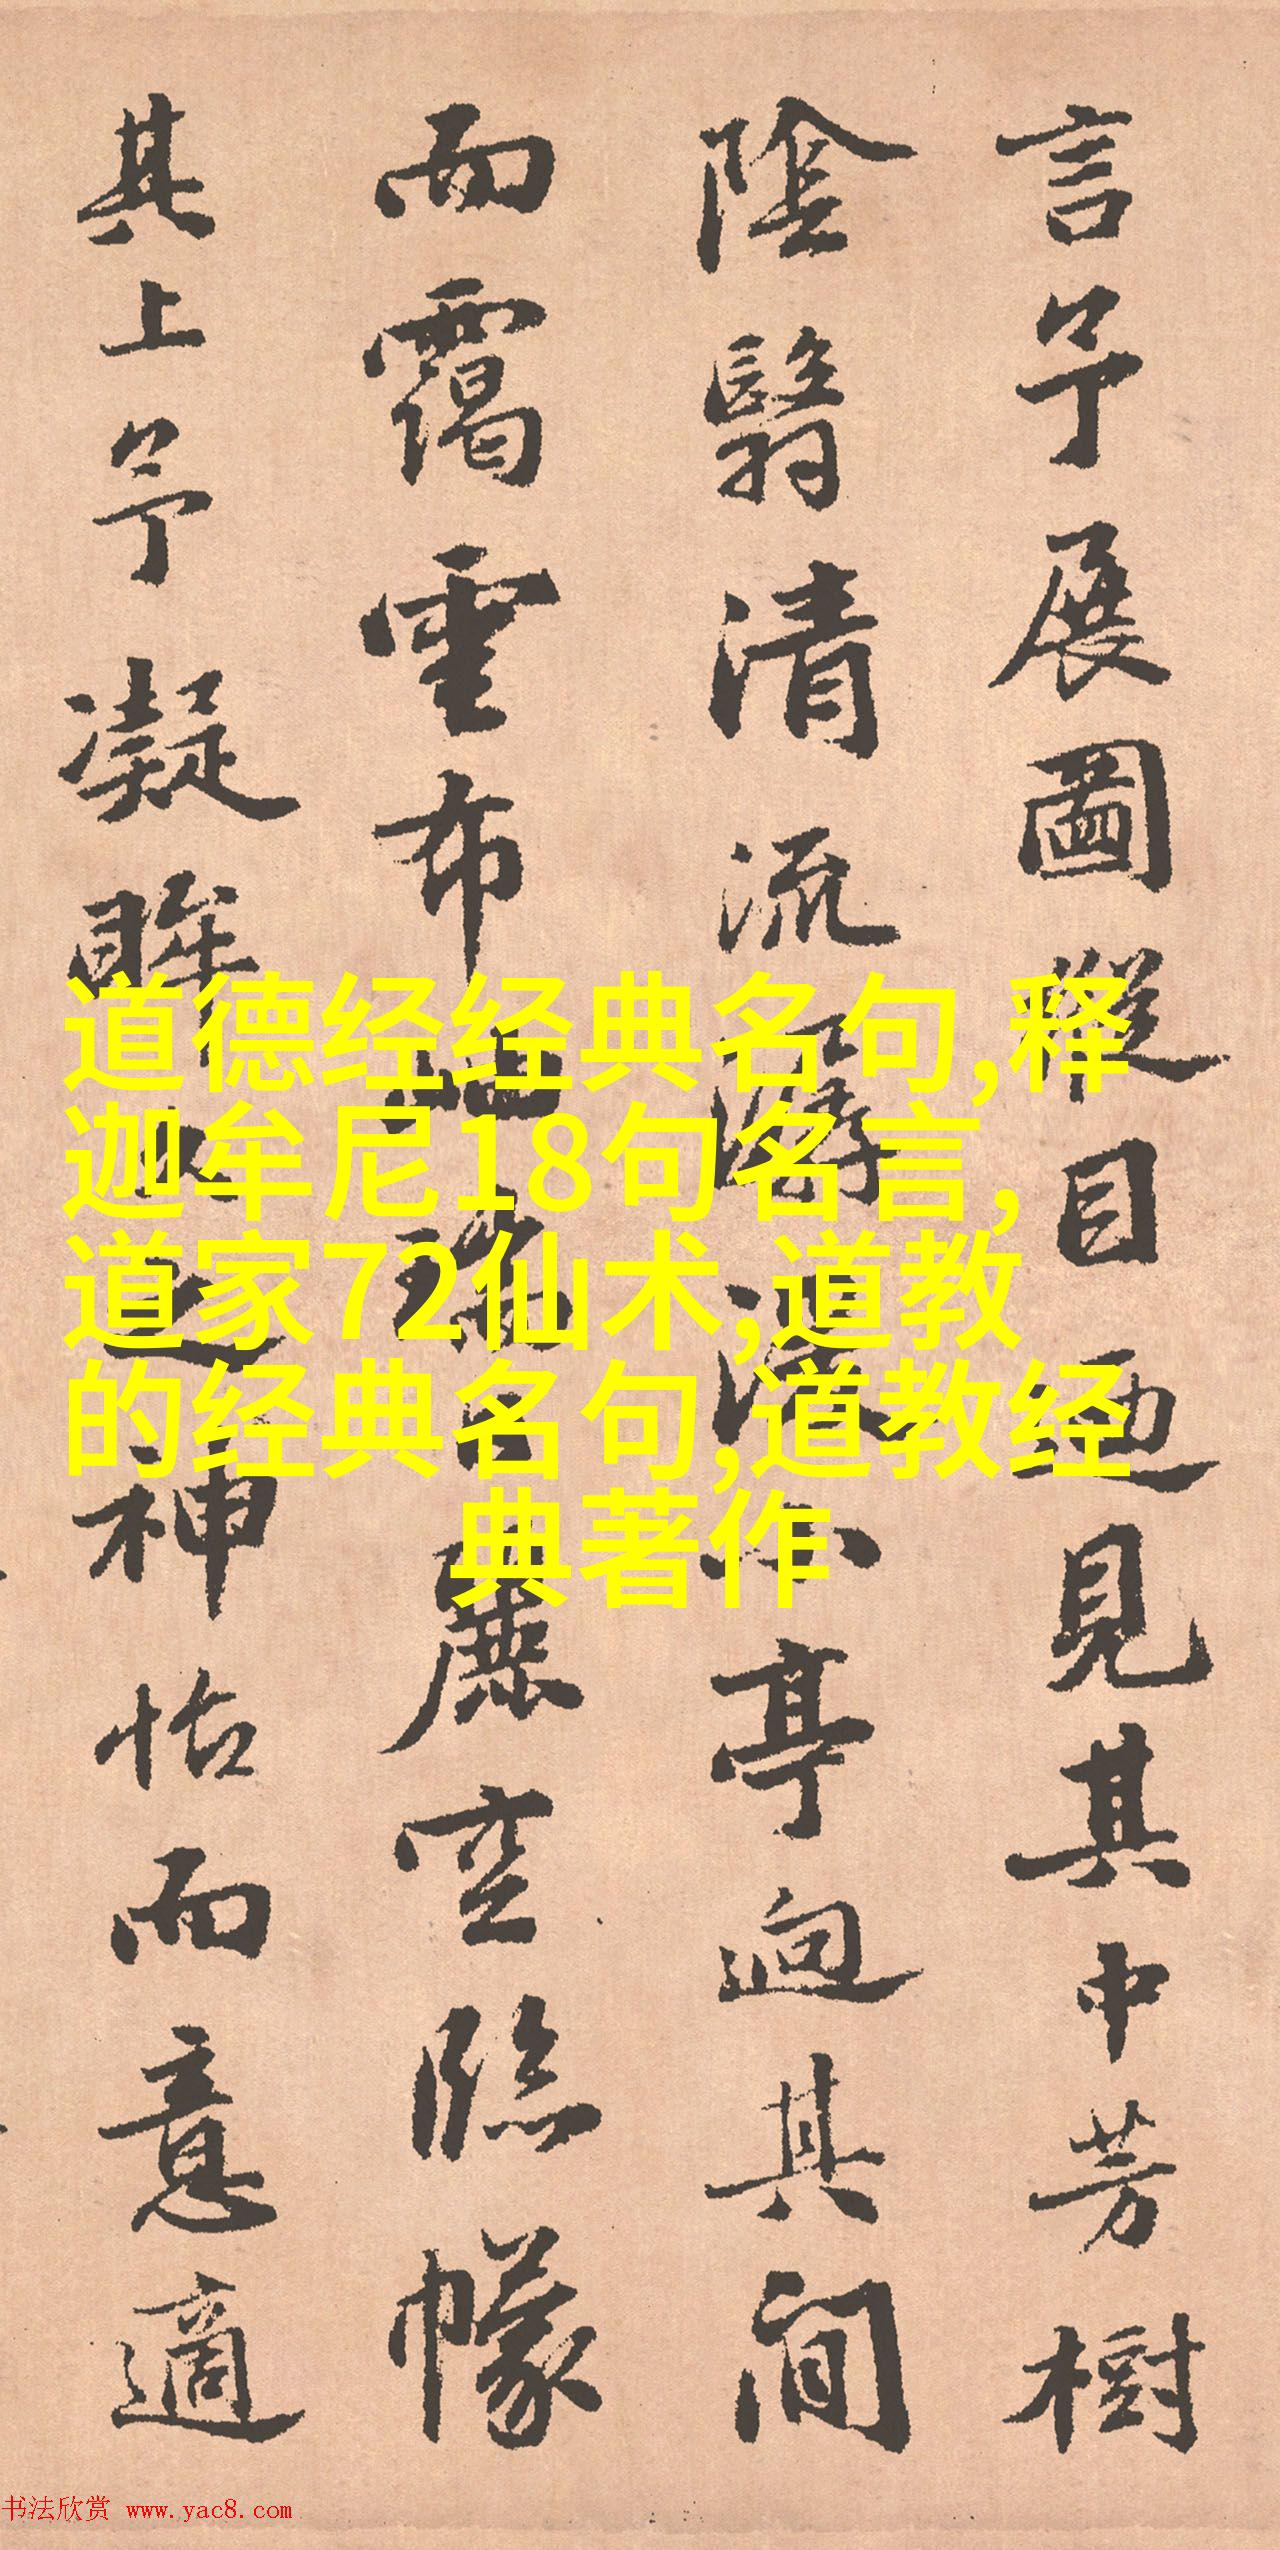 言予展圖縱目迺見其中芳樹
陰翳清流潺湲小亭逈其間
而靄雲布地瑞日麗空臨幪
其上予凝眸之神怡而意適
道德经经典名句,释
迦牟尼18句名言,
道家72仙术,道教
的经典名句,道教经
典著作
书法欣赏 www.yac8.com